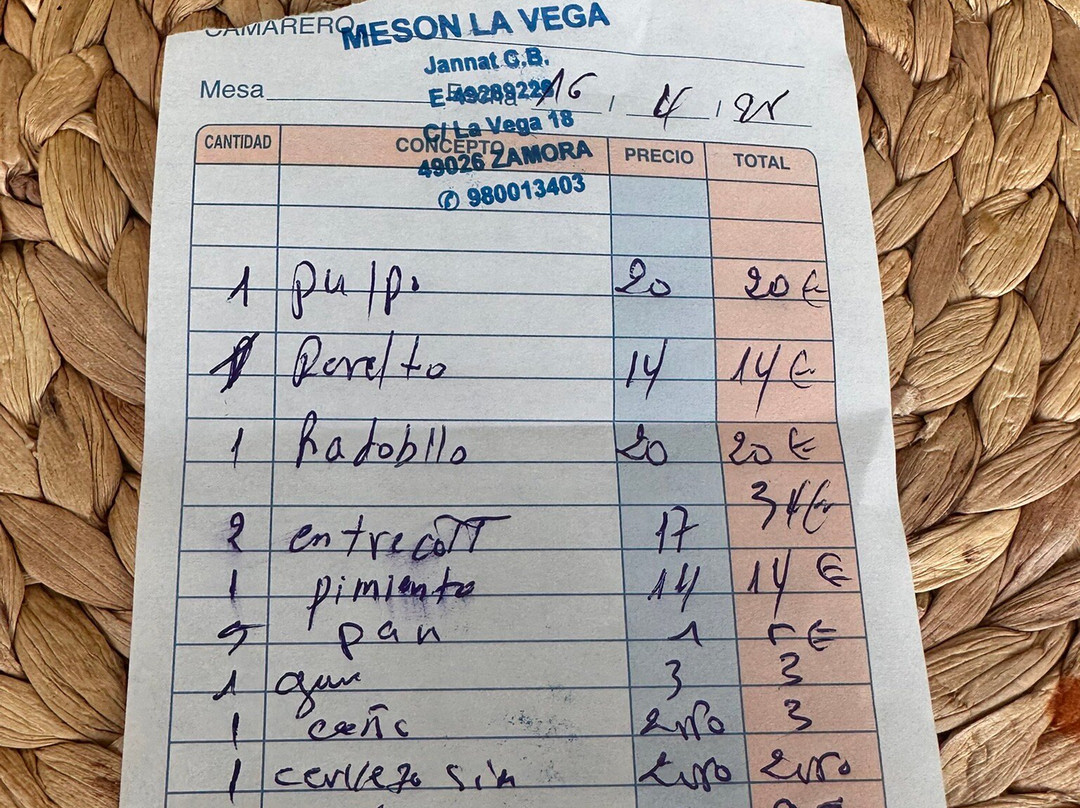 CAMARERO
MESON LA VEGA
Jannat C.B.
Mesa
E-49289229
16 / 4 / 25
C/ La Vega 18
CANTIDAD CONCEPTO PRECIO TOTAL
49026 ZAMORA
980013403
1 pulpo 20 20 €
1 14 14 €
1 20 20 €
2 entrecott 17 34 €
1 pimiento 14 14 €
5 pan 1 5 €
1 3 3
1 caña 3
1 cerveza sin